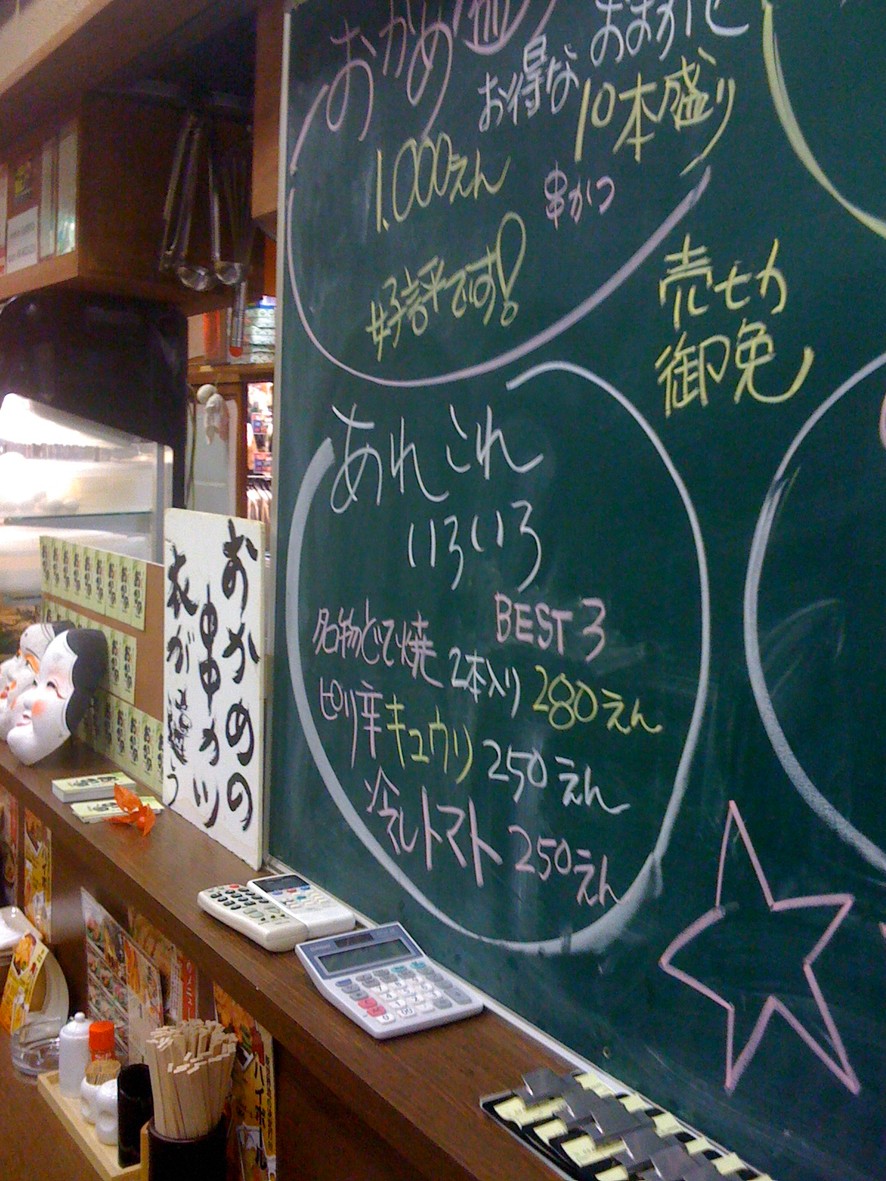 おかめ
お得な おまかせ
10本盛り
1.000えん
串かつ
好評です!
売切
御免
あれこれ
いろいろ
BEST 3
名物どて焼 2本入り 280えん
ピリ辛キュウリ 250えん
冷しトマト 250えん
おかめの
串カツ
衣が